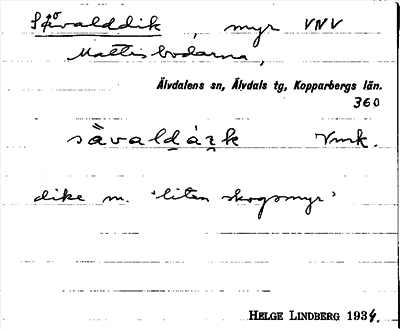 Såvalddik, myr VNV
Mattisbodarna,
Älvdalens sn, Älvdals tg, Kopparbergs län.
360
Vmk.
dike m. 'liten skogsmyr'
HELGE LINDBERG 1934.